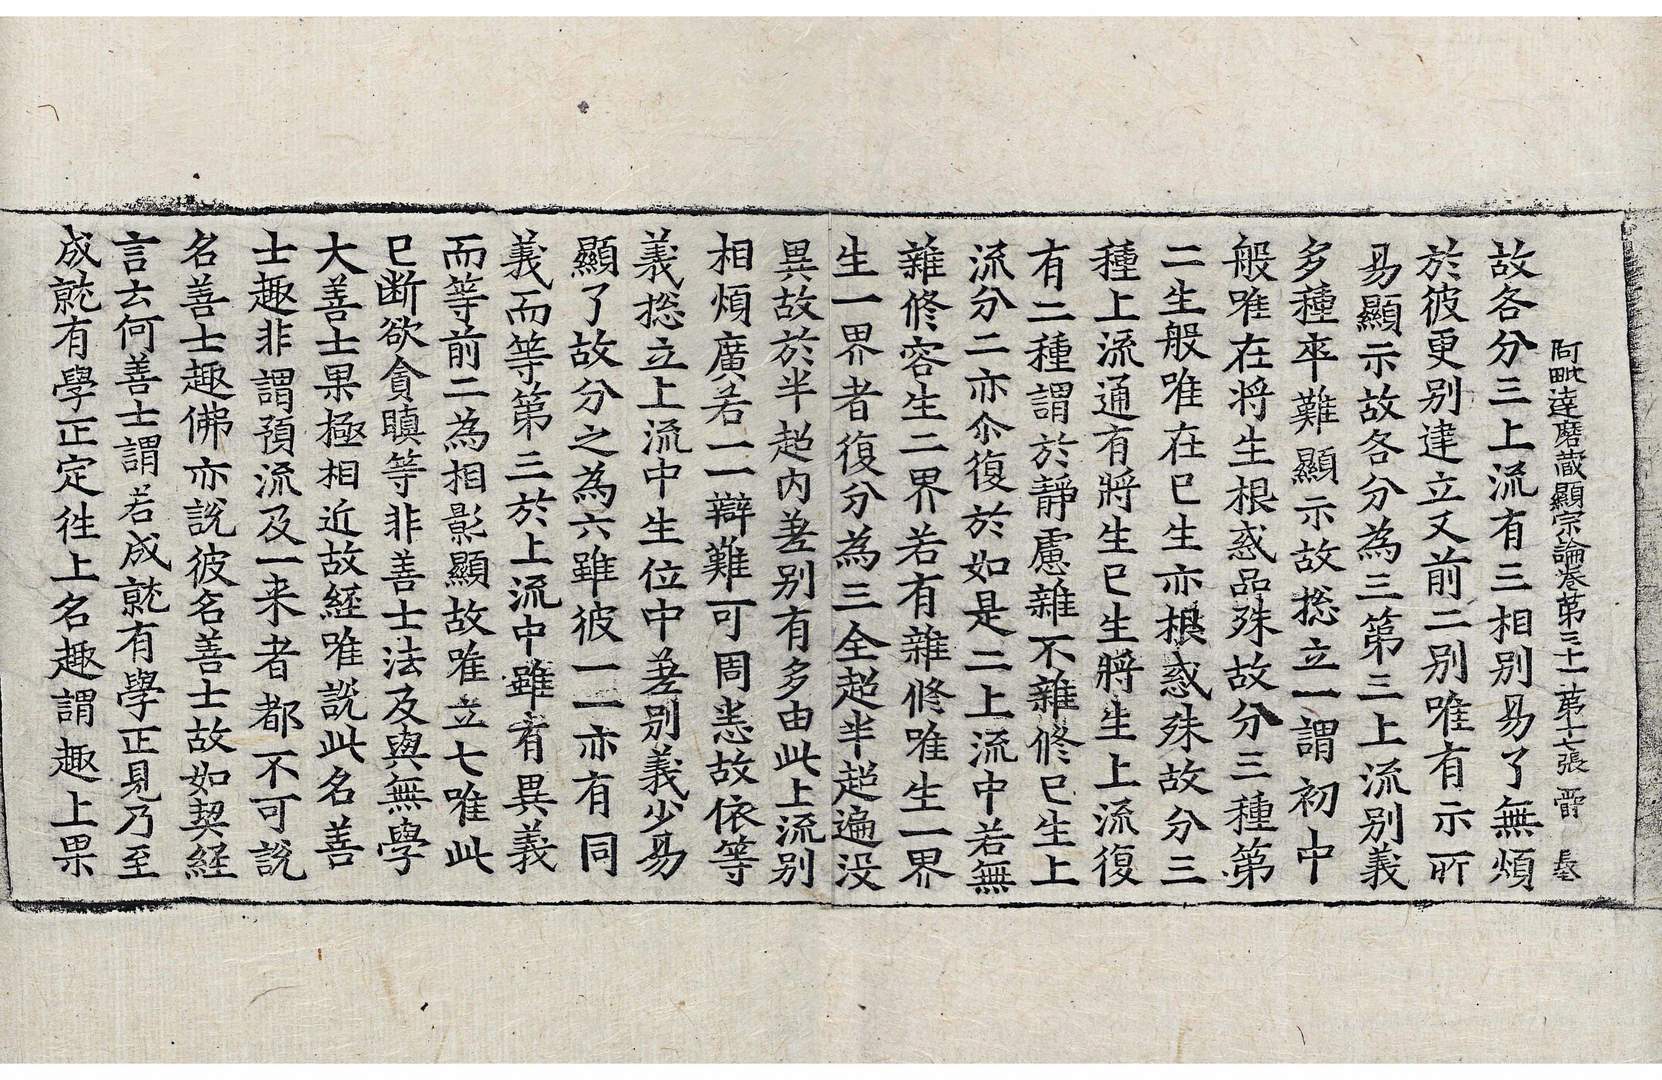 阿毗達磨蔵顯宗論卷第三十一 第十七張 爵
故各分三上流有三相別易了無煩
於彼更別建立又前二別唯有示所
易顯示故各分為三第三上流別義
多種卒難顯示故揔立一謂初中
般唯在將生根惑品殊故分三種第
二生般唯在已生亦根惑殊故分三
種上流通有將生已生將生上流復
有二種謂於靜慮雜不雜修已生上
流分二亦尒復於如是二上流中若無
雜修容生二界若有雜修唯生一界
生一界者復分為三全超半超遍没
異故於半超內差別有多由此上流別
相煩廣若一一辯難可周悉故依等
義揔立上流中生位中差別義少易
顯了故分之為六雖彼一一亦有同
義而等第三於上流中雖有異義
而等前二為相影顯故唯立七唯此
已斷欲貪瞋等非善士法及與無學
大善士果極相近故經唯說此名善
士趣非謂預流及一来者都不可說
名善士趣佛亦說彼名善士故如契經
言云何善士謂若成就有學正見乃至
成就有學正定徃上名趣謂趣上果